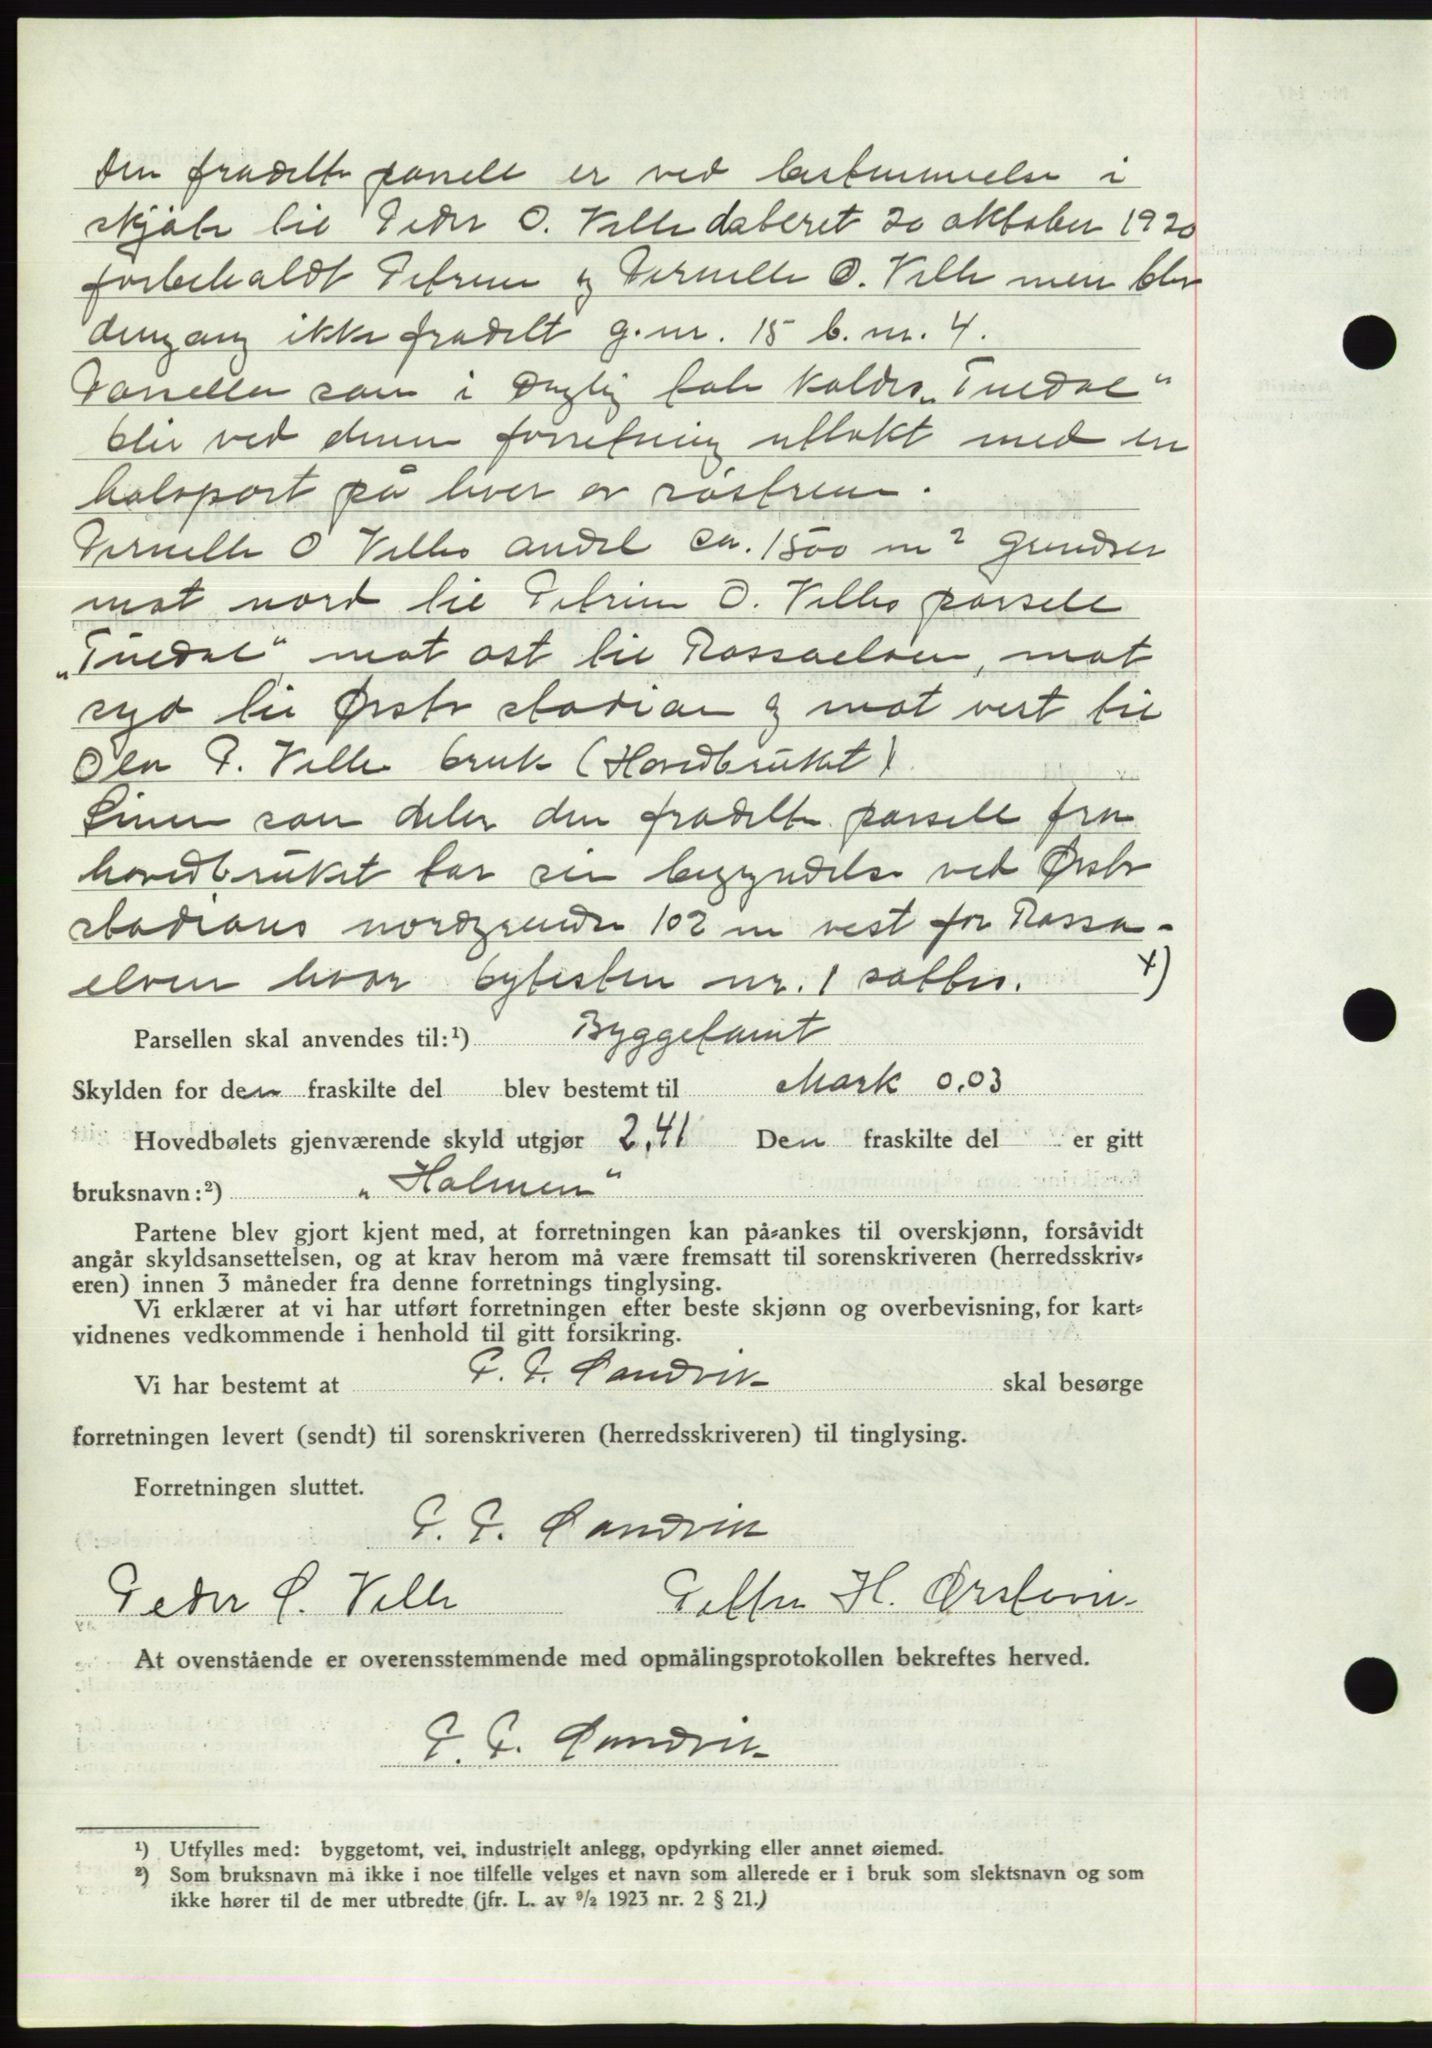 Den fradelte parsell er ved bestemmelse i
skjøte til Peder O. Velle dateret 20 oktober 1920
forbeholdt Petrine og Pernelle O. Velle men blev
dengang ikke fradelt g.nr. 15 b.nr. 4.
Parsellen som i daglig tale kaldes „Tuedal"
blir ved denne forretning utlakt med en
halvpart på hver av søstrene.
Pernelle O Velles andel ca. 1500 m² grendser
mot nord til Petrine O. Velles parsell
„Tuedal" mot øst til Rossaelven, mot
syd til Ørsta stadion og mot vest til
Ola P. Velle bruk (Hovedbruket)
Linen som deler den fradelte parsell fra
hovedbruket tar sin begyndelse ved Ørsta
stadions nordgrendse 102 m vest for Rossa-
elven hvor bytesten nr. 1 sattes. x)
Parsellen skal anvendes til:¹) Byggetomt
Skylden for den fraskilte del blev bestemt til Mark 0.03
Hovedbølets gjenværende skyld utgjør 2,41 Den fraskilte del er gitt
bruksnavn:²) „Holmen"
Partene blev gjort kjent med, at forretningen kan på-ankes til overskjønn, forsåvidt
angår skyldsansettelsen, og at krav herom må være fremsatt til sorenskriveren (herredsskriv-
eren) innen 3 måneder fra denne forretnings tinglysing.
Vi erklærer at vi har utført forretningen efter beste skjønn og overbevisning, for kart-
vidnenes vedkommende i henhold til gitt forsikring.
Vi har bestemt at P. P. Sandvik skal besørge
forretningen levert (sendt) til sorenskriveren (herredsskriveren) til tinglysing.
Forretningen sluttet.
P. P. Sandvik
Peder O. Velle Petter H. Ørstavik
At ovenstående er overensstemmende med opmålingsprotokollen bekreftes herved.
P. P. Sandvik
¹) Utfylles med: byggetomt, vei, industrielt anlegg, opdyrking eller annet øiemed.
²) Som bruksnavn må ikke i noe tilfelle velges et navn som allerede er i bruk som slektsnavn og som
ikke hører til de mer utbredte (jfr. L. av 9/2 1923 nr. 2 § 21.)